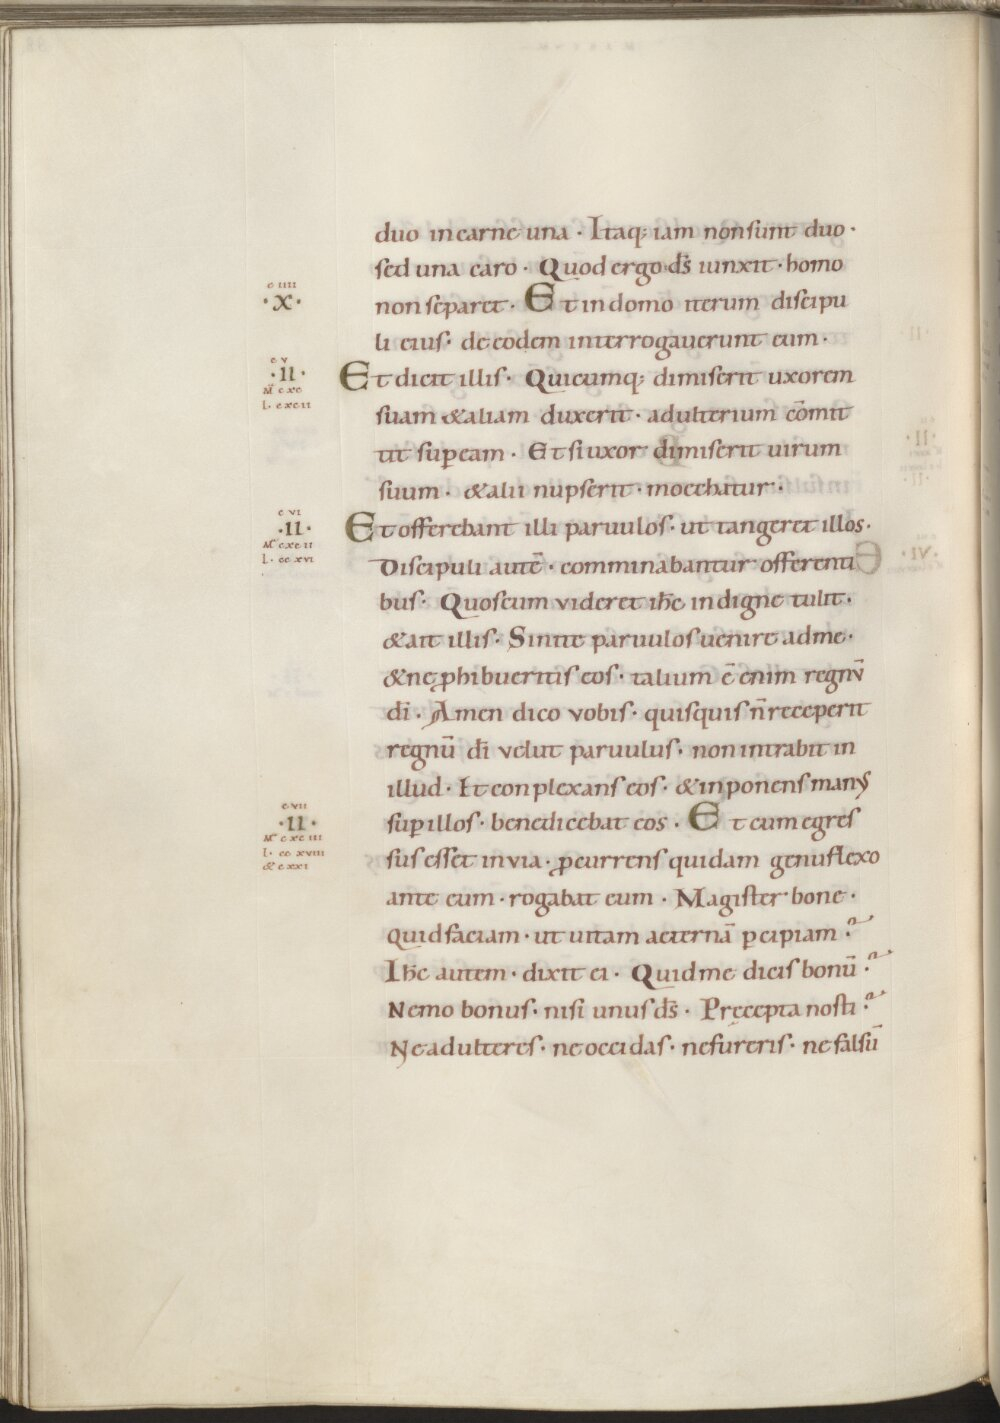 duo in carne una · Itaq; iam non sunt duo ·
sed una caro · Quod ergo d̄s iunxit · homo
c IIII
· X ·
non separet · Et in domo iterum discipu
li eius · de eodem interrogauerunt eum ·
c V
· II ·
M̄ c xc
L · c xc II
Et dicit illis · Quicumq; dimiserit uxorem
suam & aliam duxerit · adulterium cōmit
tit sup eam · Et si uxor dimiserit uirum
suum · & alii nupserit · moechatur ·
c VI
· II ·
M̄ c xc II
L · cc xvi
Et offerebant illi paruulos · ut tangeret illos ·
Discipuli autē · comminabantur offerenti
bus · Quos cum videret ih̄c indigne tulit ·
& ait illis · Sinite paruulos uenire ad me ·
& ne phibueritis eos · talium ē enim regnū
dī · Amen dico vobis · quisquis n̄ receperit
regnū dī velut paruulus · non intrabit in
illud · Et conplexans eos · & inponens manus
c VII
· II ·
M̄ c xc III
L · cc xviii
& c xxi
sup illos · benedicebat eos · Et cum egres
sus esset in via · pcurrens quidam genu flexo
ante eum · rogabat eum · Magister bone ·
Quid faciam · ut uitam aeternā pcipiam ?
Ih̄c autem · dixit ei · Quid me dicis bonū ?
Nemo bonus · nisi unus d̄s · Pręcepta nosti ?
Ne adulteres · ne occidas · ne fureris · ne falsū